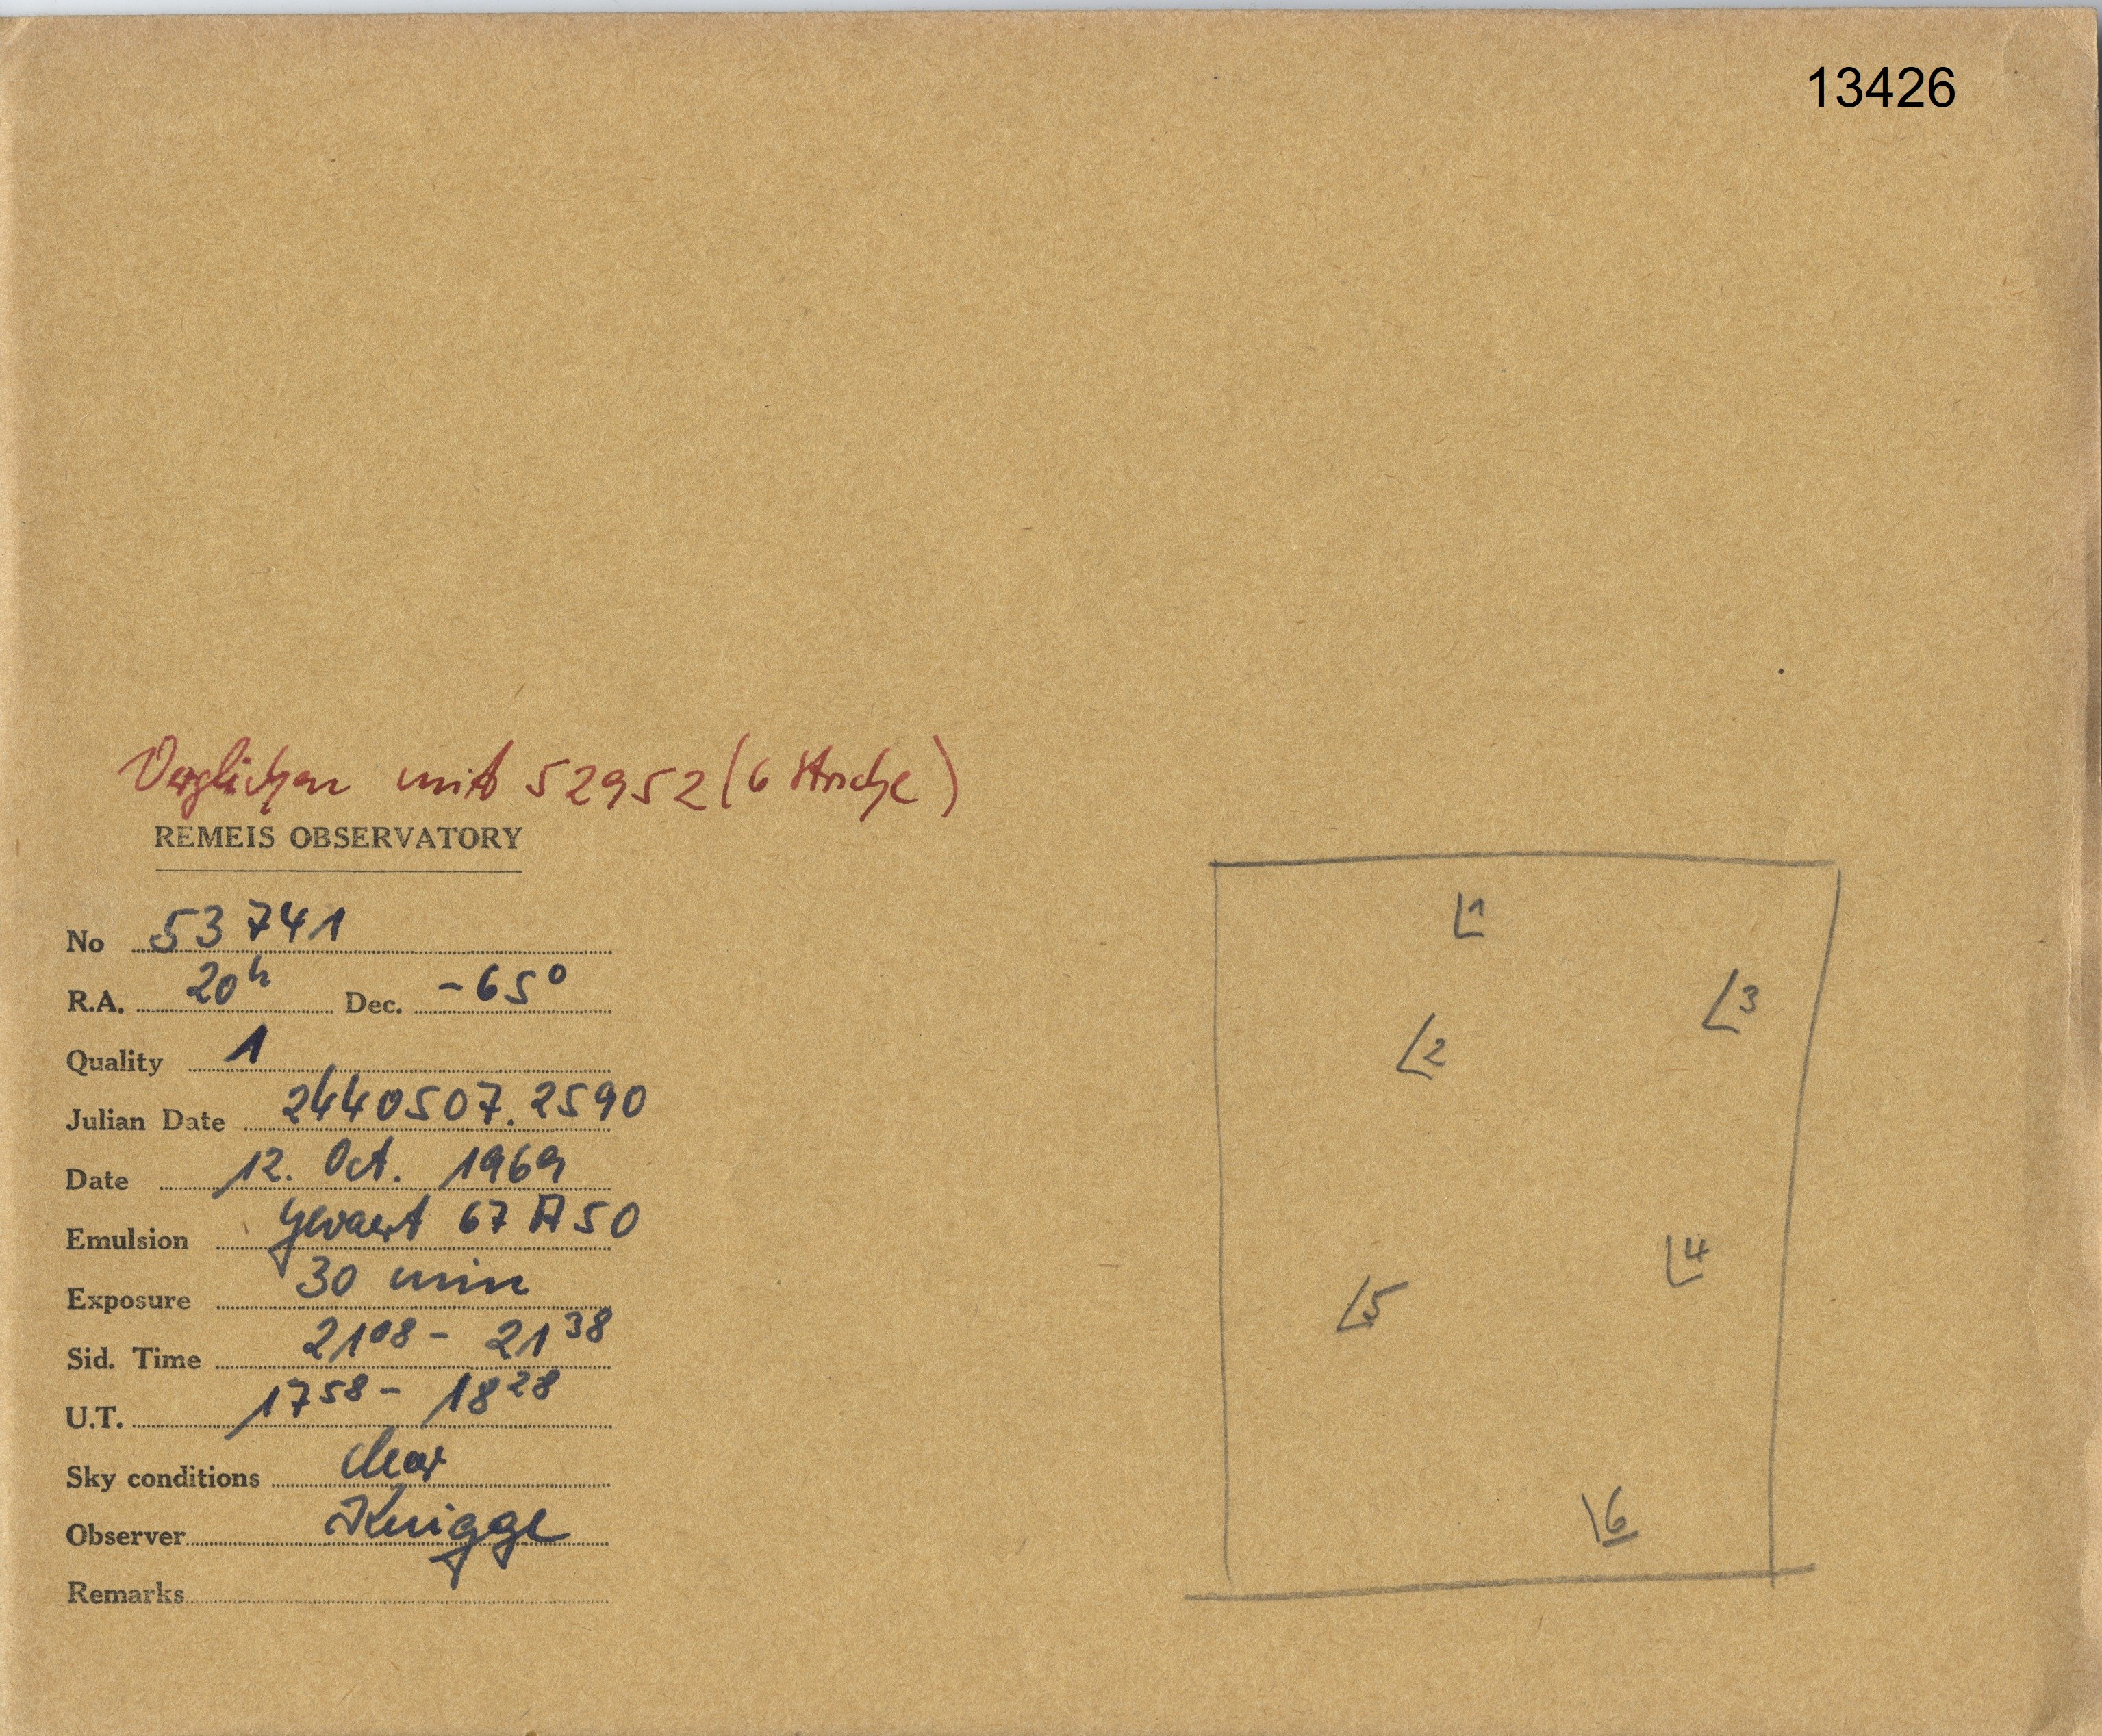 13426
Verglichen mit 52952 (6 Striche)
REMEIS OBSERVATORY
No 53741
R.A. 20h Dec. -65°
Quality 1
Julian Date 2440507.2590
Date 12. Oct. 1969
Emulsion Gevaert 67 A 50
Exposure 30 min
Sid. Time 21 08 - 21 38
U.T. 17 58 - 18 28
Sky conditions clear
Observer Knigge
Remarks
1
3
2
4
5
6